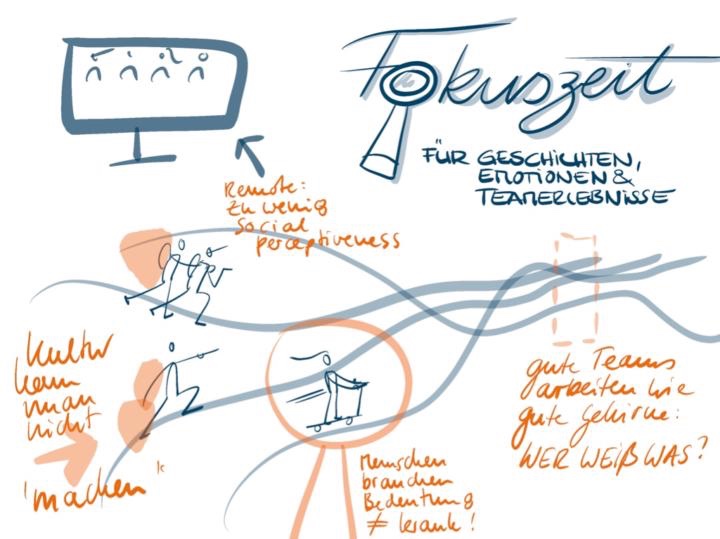 Fokuszeit
FÜR GESCHICHTEN,
EMOTIONEN &
TEAMERLEBNISSE
Remote:
zu wenig
social
perceptiveness
Kultur
kann
man
nicht
"machen"
gute Teams
arbeiten wie
gute Gehirne:
WER WEIß WAS?
Menschen
brauchen
Bedeutung
≠ krank!